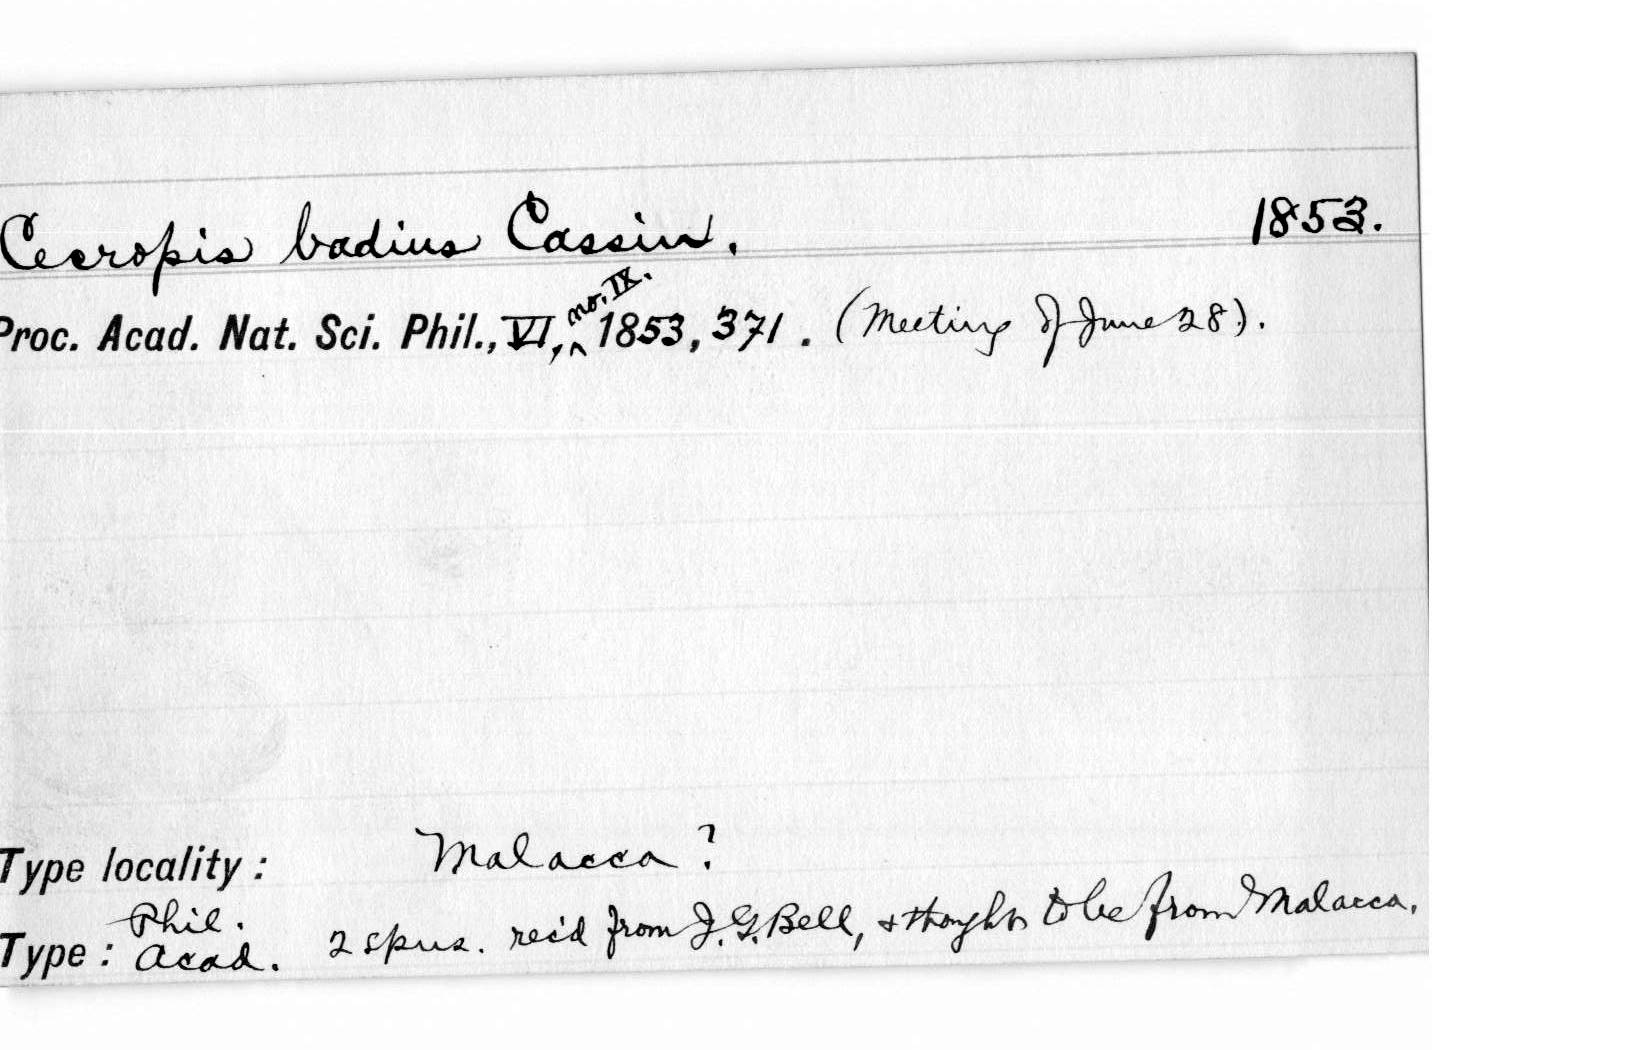 Cecropis badius Cassin. 1853.
Proc. Acad. Nat. Sci. Phil., VI, no. IX. 1853, 371. (Meeting of June 28).
Type locality: Malacca?
Type: Phil. Acad. 2 spns. rec'd from J. G. Bell, & thought to be from Malacca.